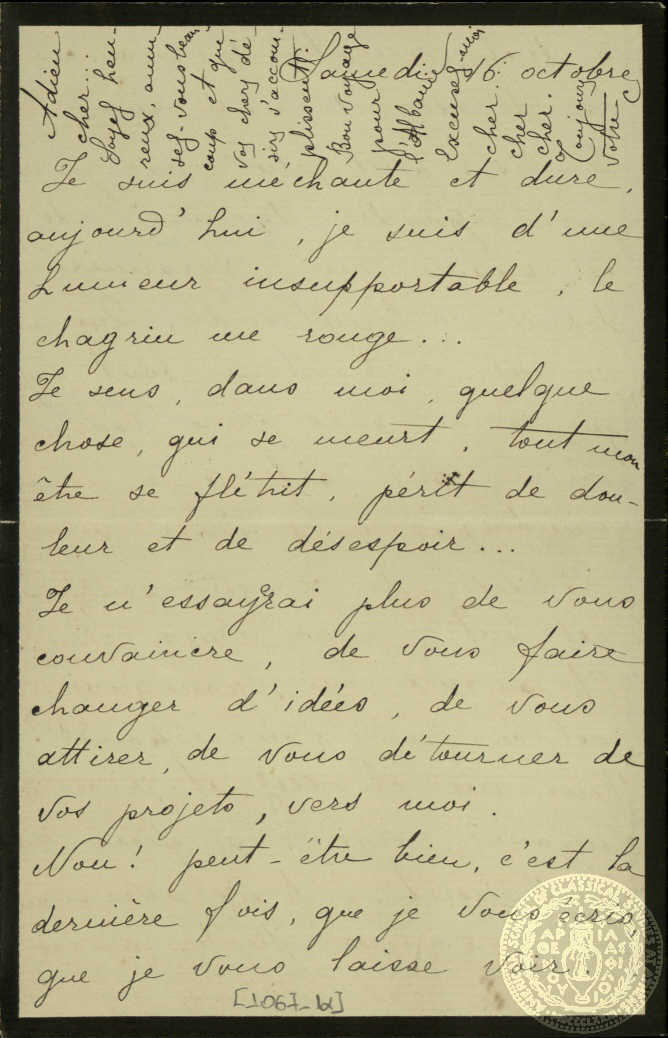 Samedi, 16 octobre
Je suis méchante et dure,
aujourd'hui, je suis d'une
humeur insupportable, le
chagrin me ronge...
Je sens, dans moi, quelque
chose, qui se meurt, tout mon
être se flétrit, périt de dou-
leur et de désespoir...
Je n'essayerai plus de vous
convaincre, de vous faire
changer d'idées, de vous
attirer, de vous détourner de
vos projets, vers moi.
Non! peut-être bien, c'est la
dernière fois, que je vous écris,
que je vous laisse voir
Adieu
cher...
Soyez heu-
reux, amu-
sez-vous beau
coup et que
vos chers dé-
sirs s'accom-
plissent!
Bon voyage
pour
l'Albanie
Excusez-moi
cher...
cher
cher.
Toujours
votre
[1067-b]